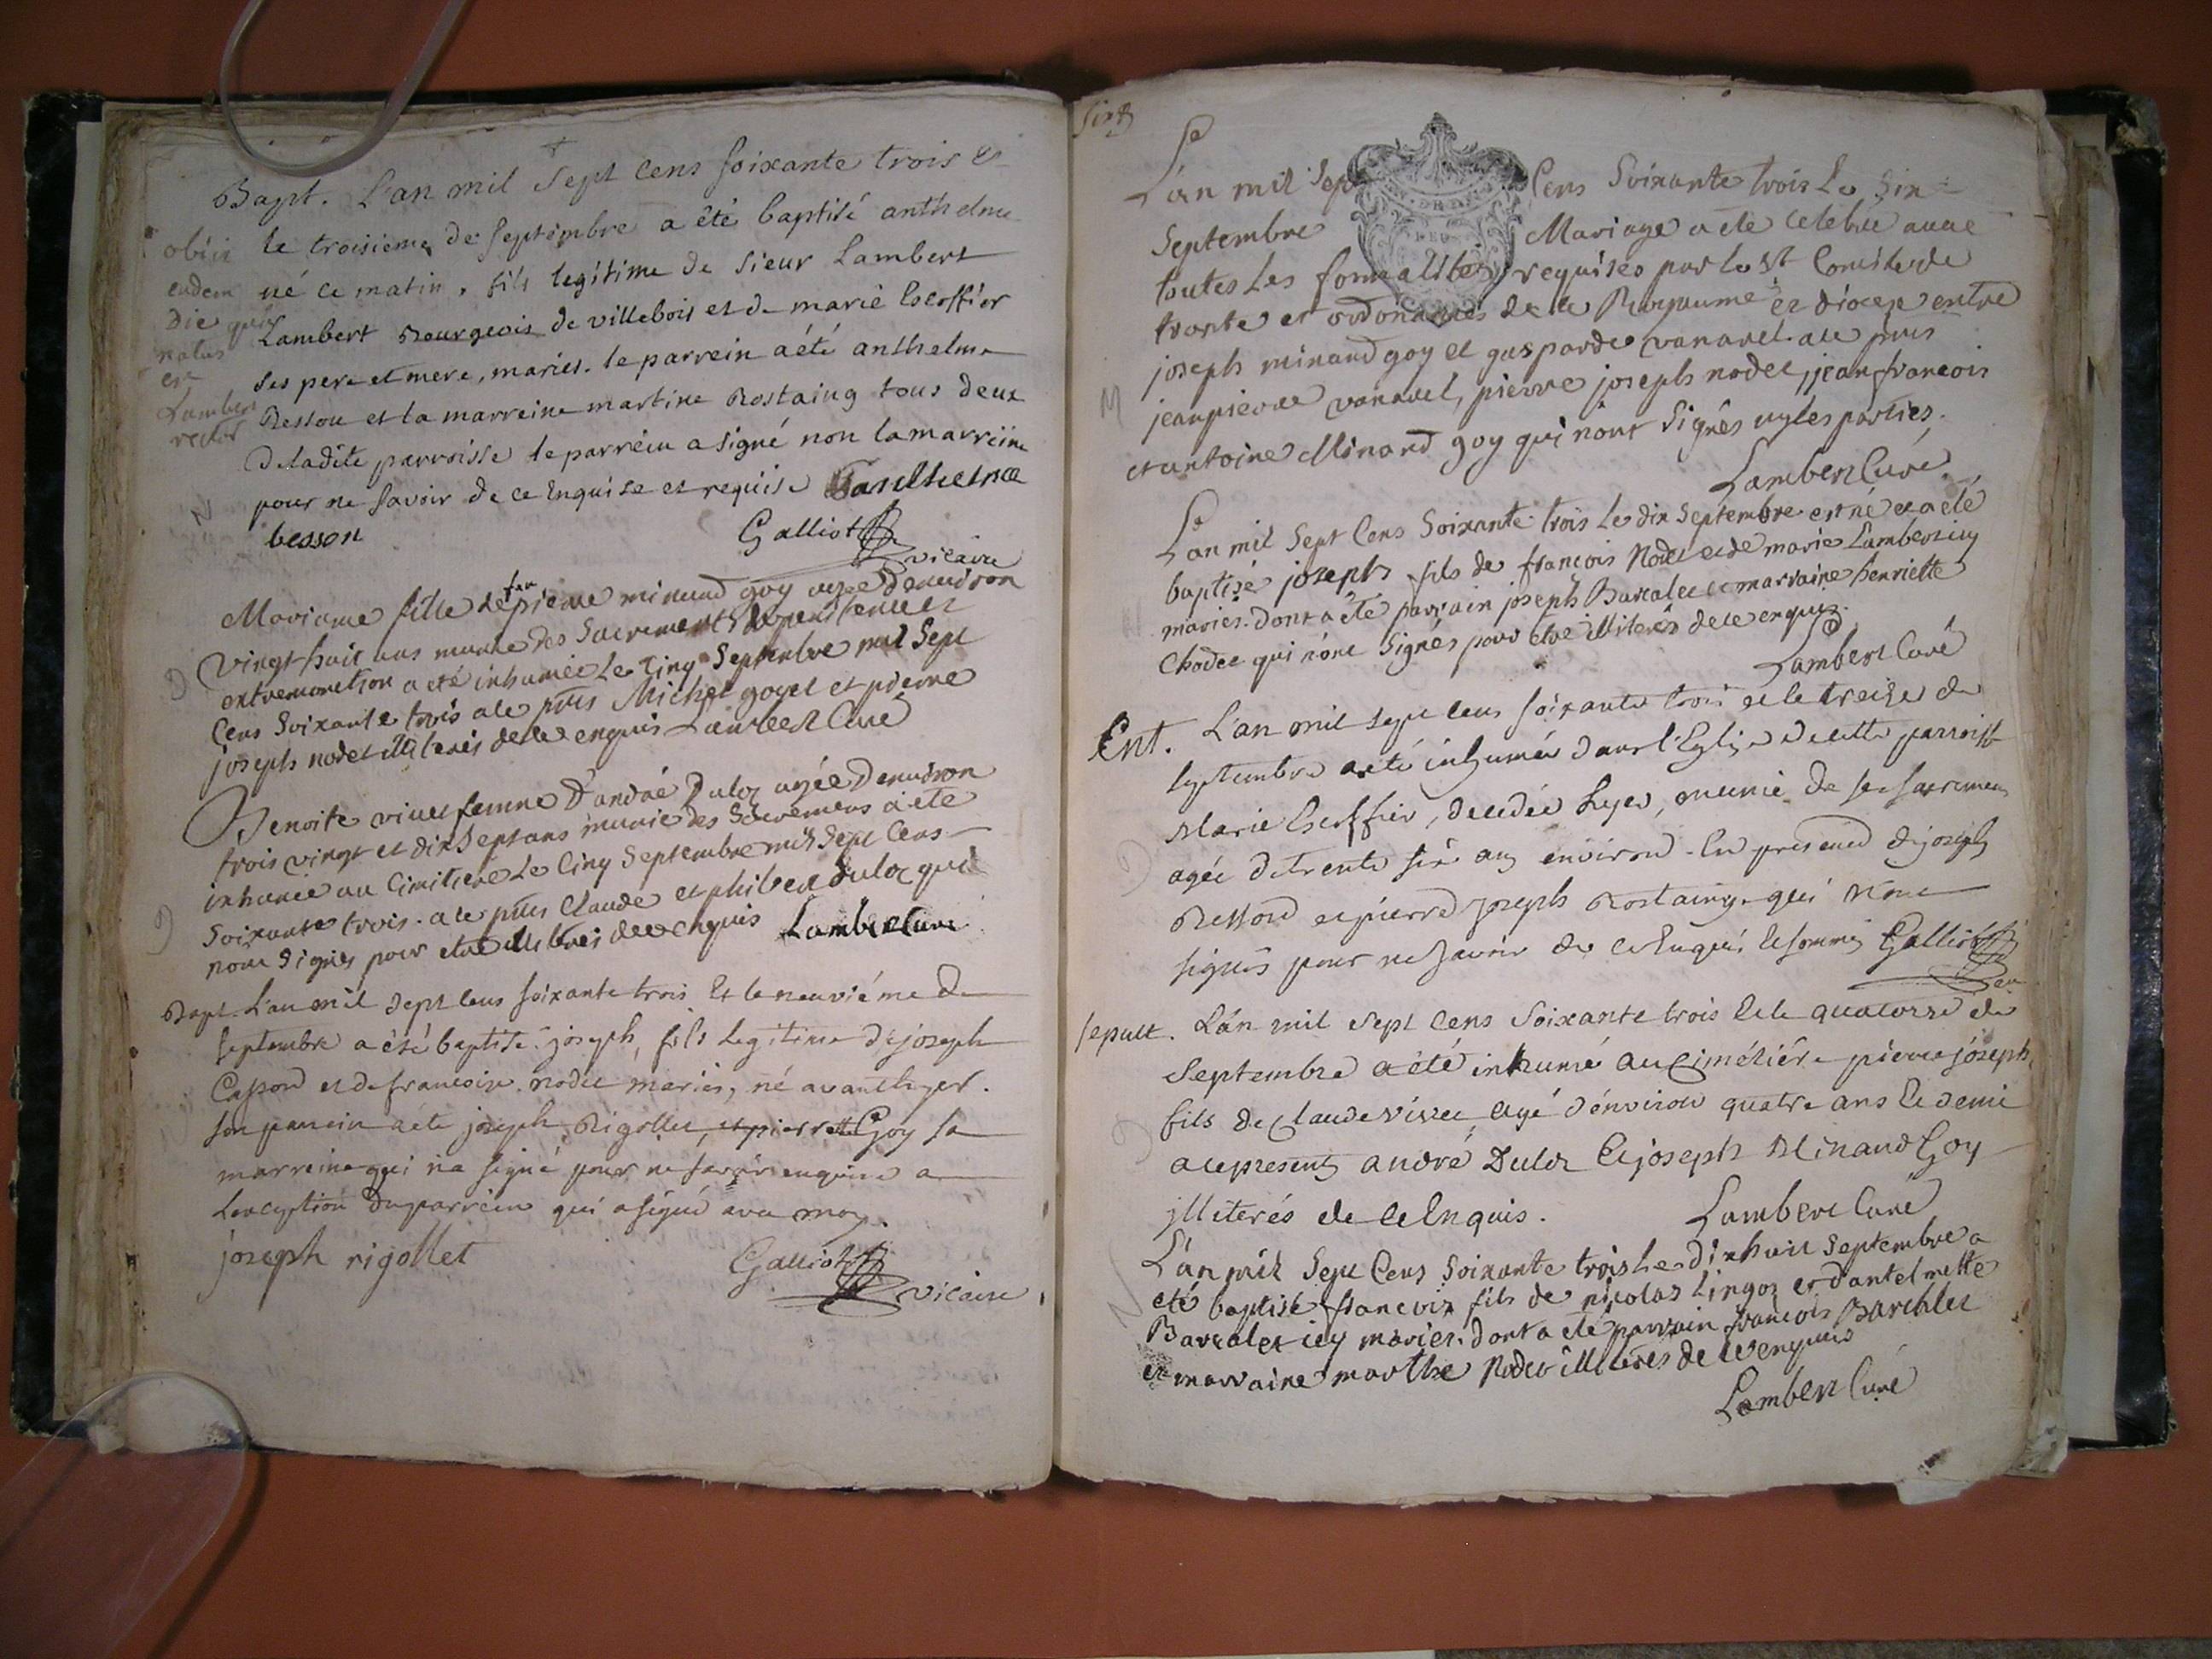 Bapt. L'an mil Sept Cens soixante trois &
le troisieme de septembre a êté baptisé anthelme
né ce matin, fils legitime de sieur Lambert
Lambert Bourgeois de villebois et de marie Escoffier
ses pere et mere, mariés. le parrein a été anthelme
Besson et la marreine martine Rostaing tous deux
de ladite parroisse le parrein a signé non la marreine
pour ne savoir de ce enquise et requise anthelme
besson
Galliot
vicaire
obiit
eadem
die qua
natus
est
Lambert
rector
N
Mariane fille de feu pierre minand goy agee denviron
vingt huit ans munie des sacrements de penitence et
extremonction a eté inhumée Le cinq Septembre mil Sept
Cens Soixante trois a ce pnts Michel goyet et pierre
joseph nodet illiterés de ce enquis Lambert Curé
D
Benoite vivet femme D'andré Duloz agée Denviron
trois vingt et dix Sept ans munie des Sacremens a ete
inhumée au Cimitiere Le Cinq Septembre mil Sept Cens
Soixante trois. a ce pnts Claude et philibert duloz qui
nont Signés pour etre illiterés de ce enquis Lambert Curé
D
Bapt. L'an mil Sept Cens soixante trois Et le neuviéme de
septembre a été baptisé joseph, fils legitime de joseph
Casson et de francoise nodet mariés, né avant hyer.
son parrein a été joseph Rigollet, et pierrette Goy sa
marreine qui n'a signé pour ne savoir enquise a
lexception du parrein qui a signé avec moy.
joseph rigollet
Galliot
vicaire
Sixt
L'an mil Sept Cens Soixante trois Le Six
Septembre Mariage a ete celebré avec
toutes Les formalites requises par le st Concile de
trante et ordonances de ce Royaume et dioceze entre
joseph minand goy et gasparde vanavel. a ce pnts
jeanpierre vanavel, pierre joseph nodet, jean francois
et antoine Minand goy qui n'ont Signés ny les parties.
Lambert Curé
M
L'an mil Sept Cens Soixante trois Le dix Septembre est né et a eté
baptisé joseph fils de françois Nodet et de marie Lambert icy
mariés. dont a été parrain joseph Barcalet et marraine henriette
Chodet qui n'ont Signés pour etre illiterés de ce enquis.
Lambert Curé
Ent. L'an mil sept cens soixante trois et le treize de
septembre a été inhumée dans l'Eglise de cette parroisse
Marie Escoffier, decedée hyer, munie de ses sacremens
agée de trente six ans environ. En presence de joseph
Besson et pierre joseph Rostaing qui n'ont
signés pour ne savoir de ce Enquis et sommés Galliot
D
sepult. L'an mil Sept Cens Soixante trois Et le quatorze de
Septembre a été inhumé au Cimétiére pierre joseph
fils de Claude vivet agé d'environ quatre ans Et demi
a ce presents andré Duloz Et joseph Minand Goy
illiterés de ce Enquis.
Lambert Curé
D
L'an mil Sept Cens Soixante trois Le Dixhuit Septembre a
eté baptisé francois fils de nicolas Lingoz et d'antelmette
Barcalet icy mariés. dont a eté parrain francois Barcalet
et marraine marthe Nodet illiterés de ce enquis
Lambert Curé
N